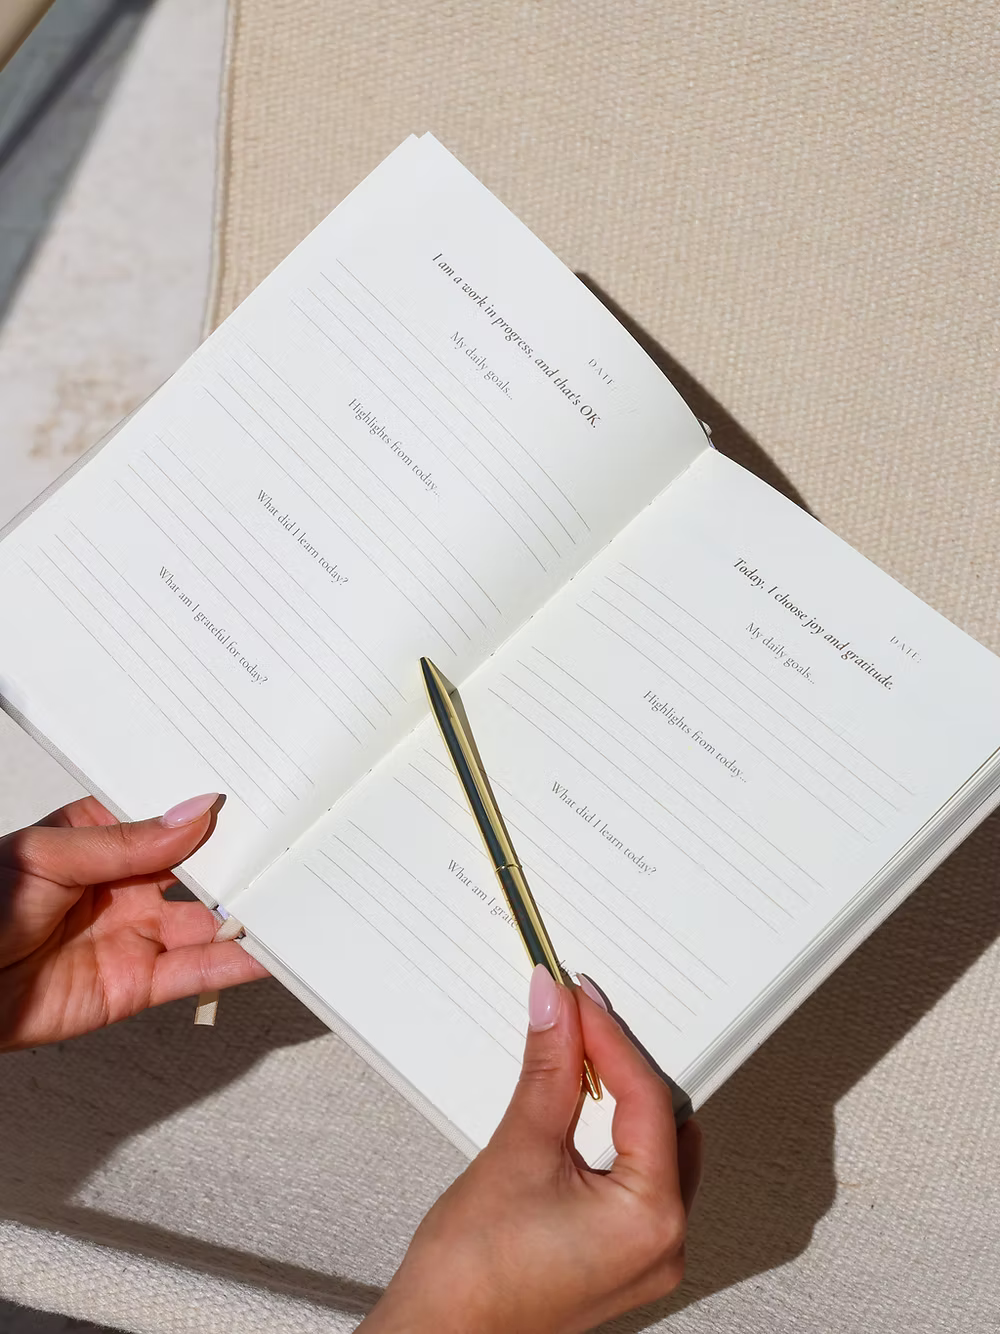 DATE
I am a work in progress, and that's OK.
My daily goals...
Highlights from today...
What did I learn today?
What am I grateful for today?
DATE:
Today, I choose joy and gratitude.
My daily goals...
Highlights from today...
What did I learn today?
What am I